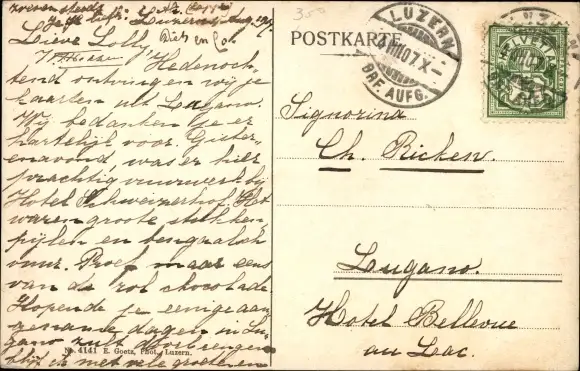 Luzern Aug.
Lieve Lolly,
Hedenoch-
tend ontvingen wij je
kaarten uit Lugano.
Wij bedanken je er
hartelijk voor. Gister-
enavond, was er hier
prachtig vuurwerk bij
Hotel Schweizerhof. Het
waren groote stukken
pijlen en bengaalsch
vuur. Proef maar eens
van de rol chocolade
Hopende je eenige aan
gename dagen in Lu-
gano zult doorbrengen
blijf ik met vele groeten en
No. 4141 E. Goetz, Phot., Luzern.
350
POSTKARTE
LUZERN
BRF. AUFG.
HELVETIA
Signorina
Ch. Ricken.
Lugano.
Hotel Bellevue
au Lac.